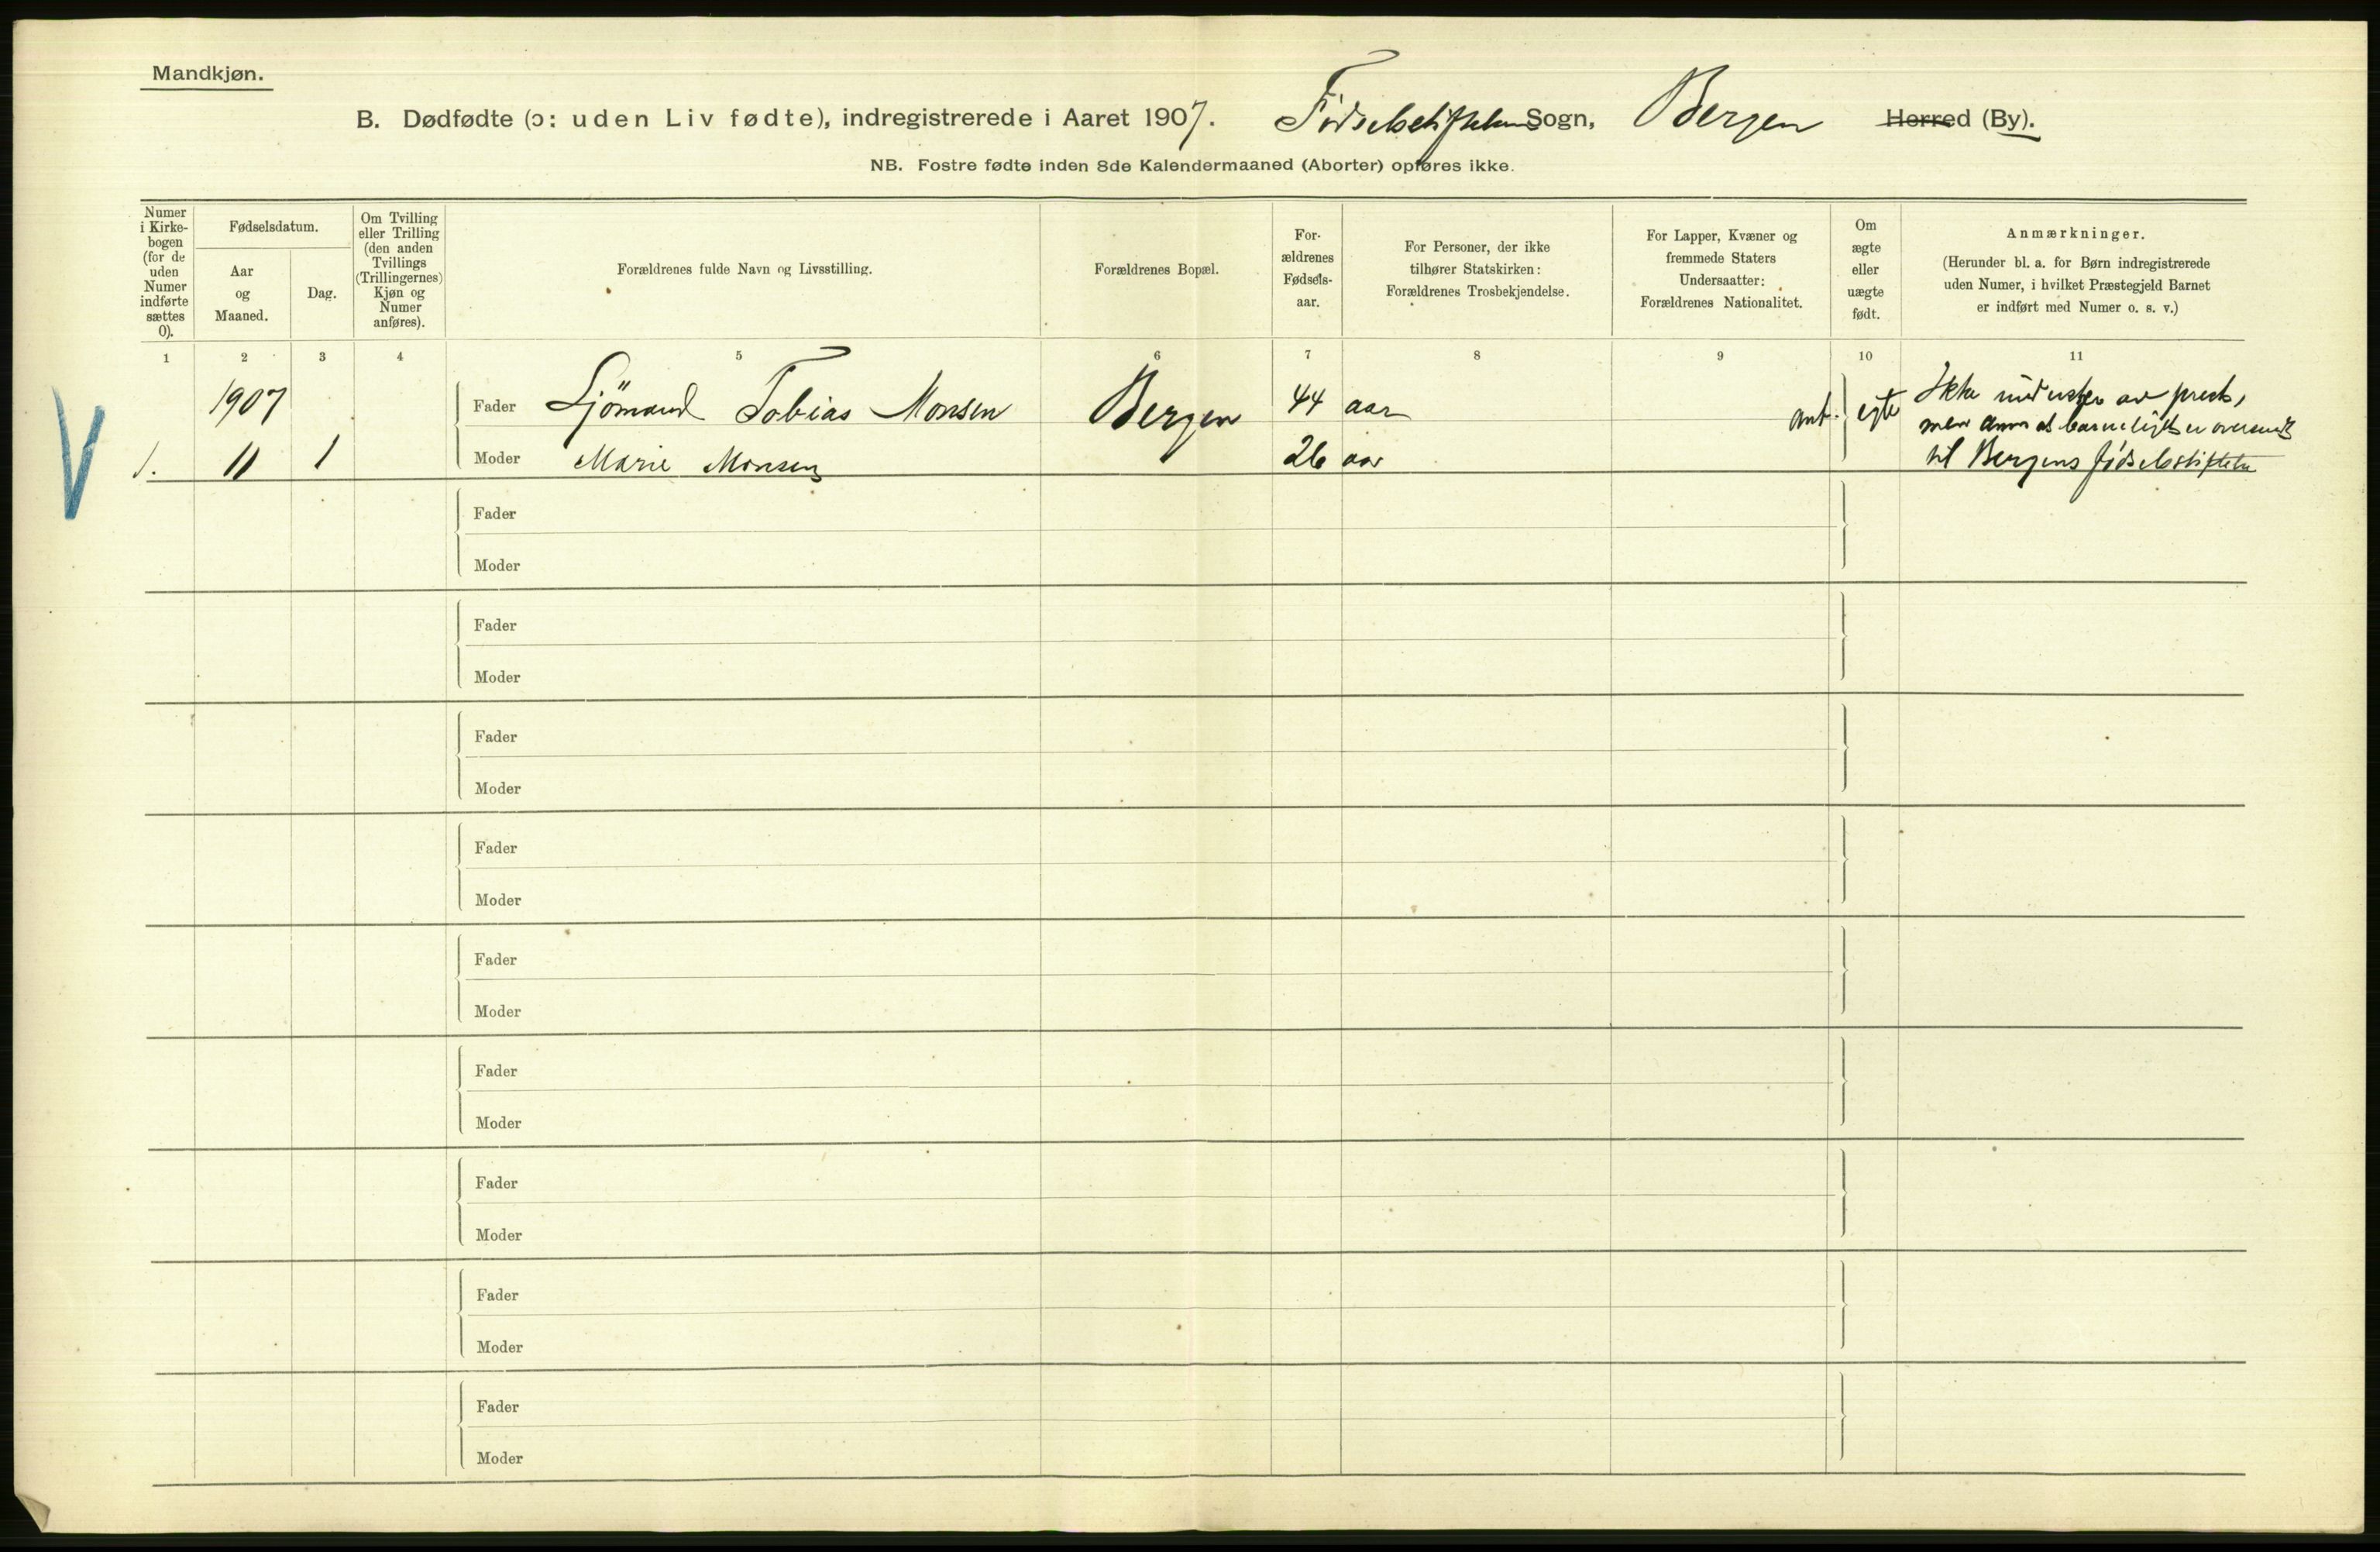 Mandkjøn.
B. Dødfødte (ɔ: uden Liv fødte), indregistrerede i Aaret 1907. Fødselsstiftelsens Sogn, Bergen Herred (By).
NB. Fostre fødte inden 8de Kalendermaaned (Aborter) opføres ikke.
Numer
i Kirke-
bogen
(for de
uden
Numer
indførte
sættes
0).
Fødselsdatum.
Aar
og
Maaned.
Dag.
Om Tvilling
eller Trilling
(den anden
Tvillings
(Trillingernes)
Kjøn og
Numer
anføres).
Forældrenes fulde Navn og Livsstilling.
Forældrenes Bopæl.
For-
ældrenes
Fødsels-
aar.
For Personer, der ikke
tilhører Statskirken:
Forældrenes Trosbekjendelse.
For Lapper, Kvæner og
fremmede Staters
Undersaatter:
Forældrenes Nationalitet.
Om
ægte
eller
uægte
født.
Anmærkninger.
(Herunder bl. a. for Børn indregistrerede
uden Numer, i hvilket Præstegjeld Barnet
er indført med Numer o. s. v.)
1 2 3 4 5 6 7 8 9 10 11
1907
Fader Sjömand Tobias Monsen Bergen 44 aar ant. egte
1. 11 1 Moder Marie Monsen 26 aar
Ikke av prest,
men at barneliget er oversendt
til Bergens fødselsstiftelse
Fader
Moder
Fader
Moder
Fader
Moder
Fader
Moder
Fader
Moder
Fader
Moder
Fader
Moder
Fader
Moder
Fader
Moder